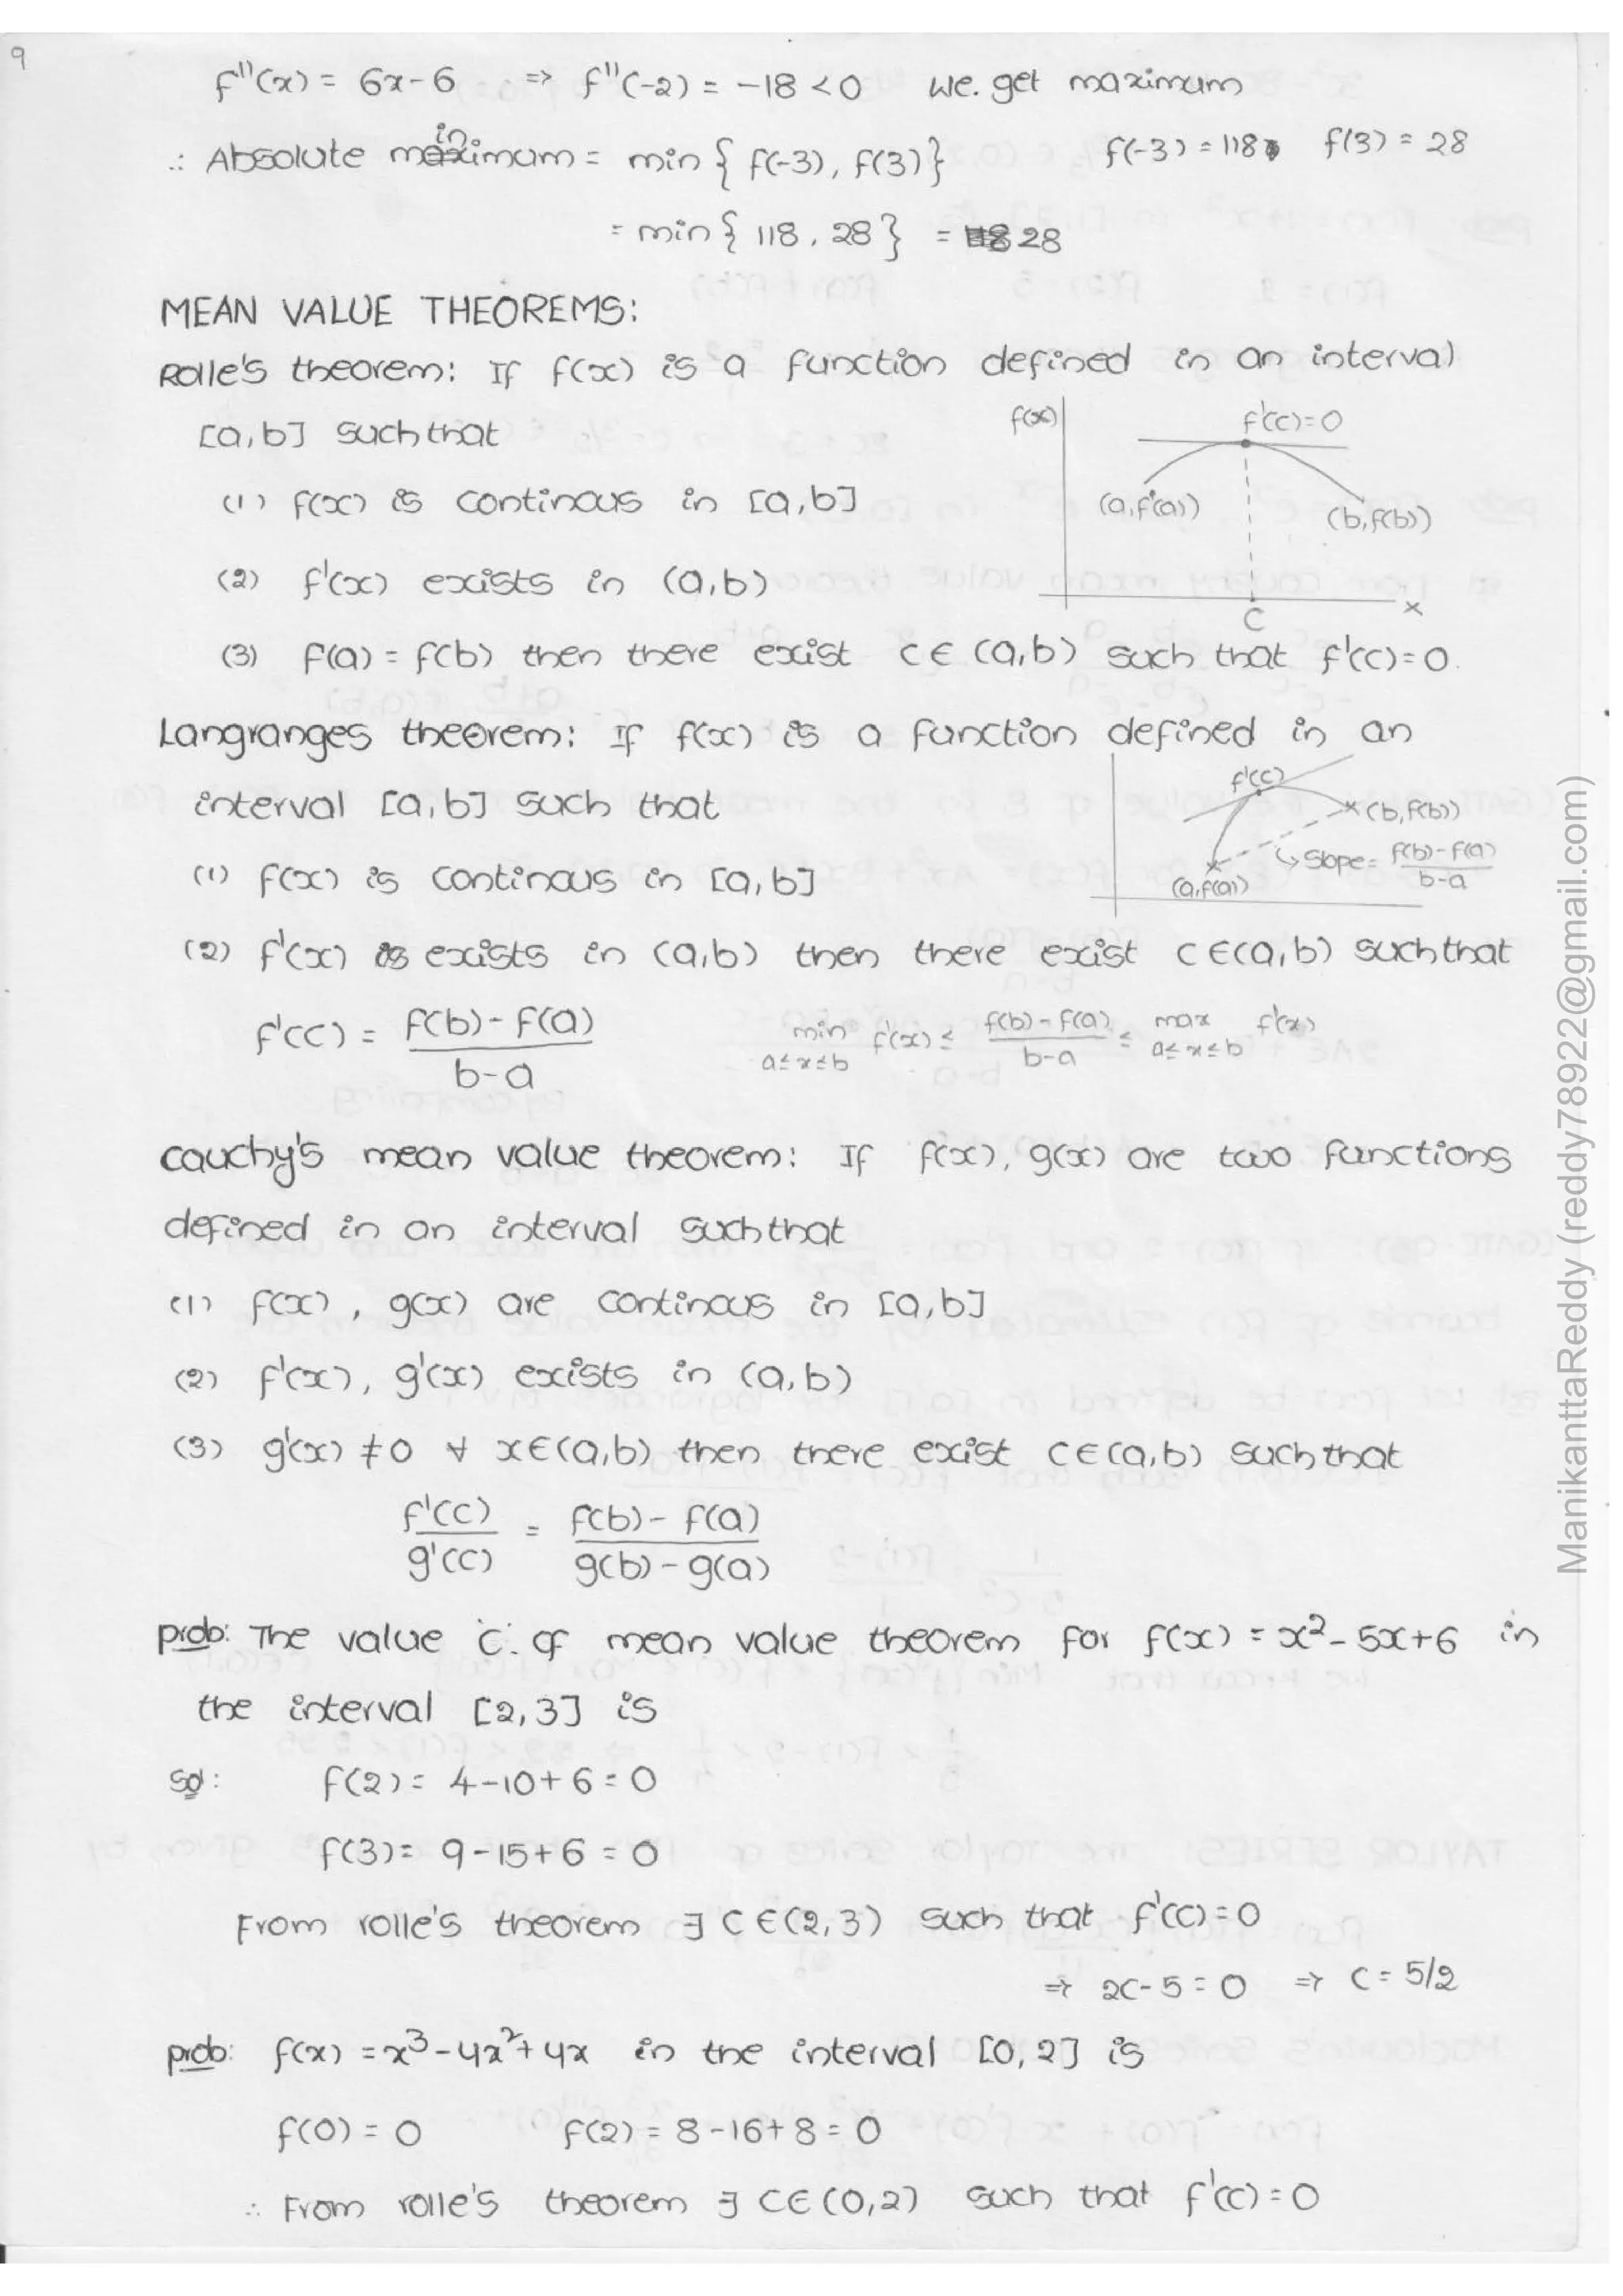 9
f''(x) = 6x-6 => f''(-2) = -18 < 0 we. get maximum
∴ Absolute minimum = min { f(-3), f(3)} f(-3) = 118 f(3) = 28
= min { 118, 28 } = 28
MEAN VALUE THEOREMS:
Rolle's theorem: If f(x) is a function defined in an interval
[a,b] such that
f(x) f'(c)=0
(a,f(a)) (b,f(b))
c x
(1) f(x) is continous in [a,b]
(2) f'(x) exists in (a,b)
(3) f(a) = f(b) then there exist c ∈ (a,b) such that f'(c)=0.
Langranges theorem: If f(x) is a function defined in an
interval [a,b] such that
f'(c)
(b,f(b))
↳ Slope = f(b)-f(a) / b-a
(a,f(a))
(1) f(x) is continous in [a,b]
(2) f'(x) exists in (a,b) then there exist c ∈ (a,b) such that
f'(c) = f(b)-f(a) / b-a min a≤x≤b f'(x) ≤ f(b)-f(a) / b-a ≤ max a≤x≤b f'(x)
Cauchy's mean value theorem: If f(x), g(x) are two functions
defined in an interval such that
(1) f(x), g(x) are continous in [a,b]
(2) f'(x), g'(x) exists in (a,b)
(3) g'(x) ≠ 0 ∀ x∈(a,b) then there exist c∈(a,b) such that
f'(c) / g'(c) = f(b)-f(a) / g(b)-g(a)
prob: The value 'c' of mean value theorem for f(x) = x²-5x+6 in
the interval [2,3] is
Sol: f(2) = 4-10+6 = 0
f(3) = 9-15+6 = 0
From rolle's theorem ∃ c ∈(2,3) such that f'(c)=0
=> 2c-5=0 => c = 5/2
prob: f(x) = x³-4x²+4x in the interval [0,2] is
f(0) = 0 f(2) = 8-16+8 = 0
∴ From rolle's theorem ∃ c∈(0,2) such that f'(c)=0
ManikanttaReddy (reddy78922@gmail.com)